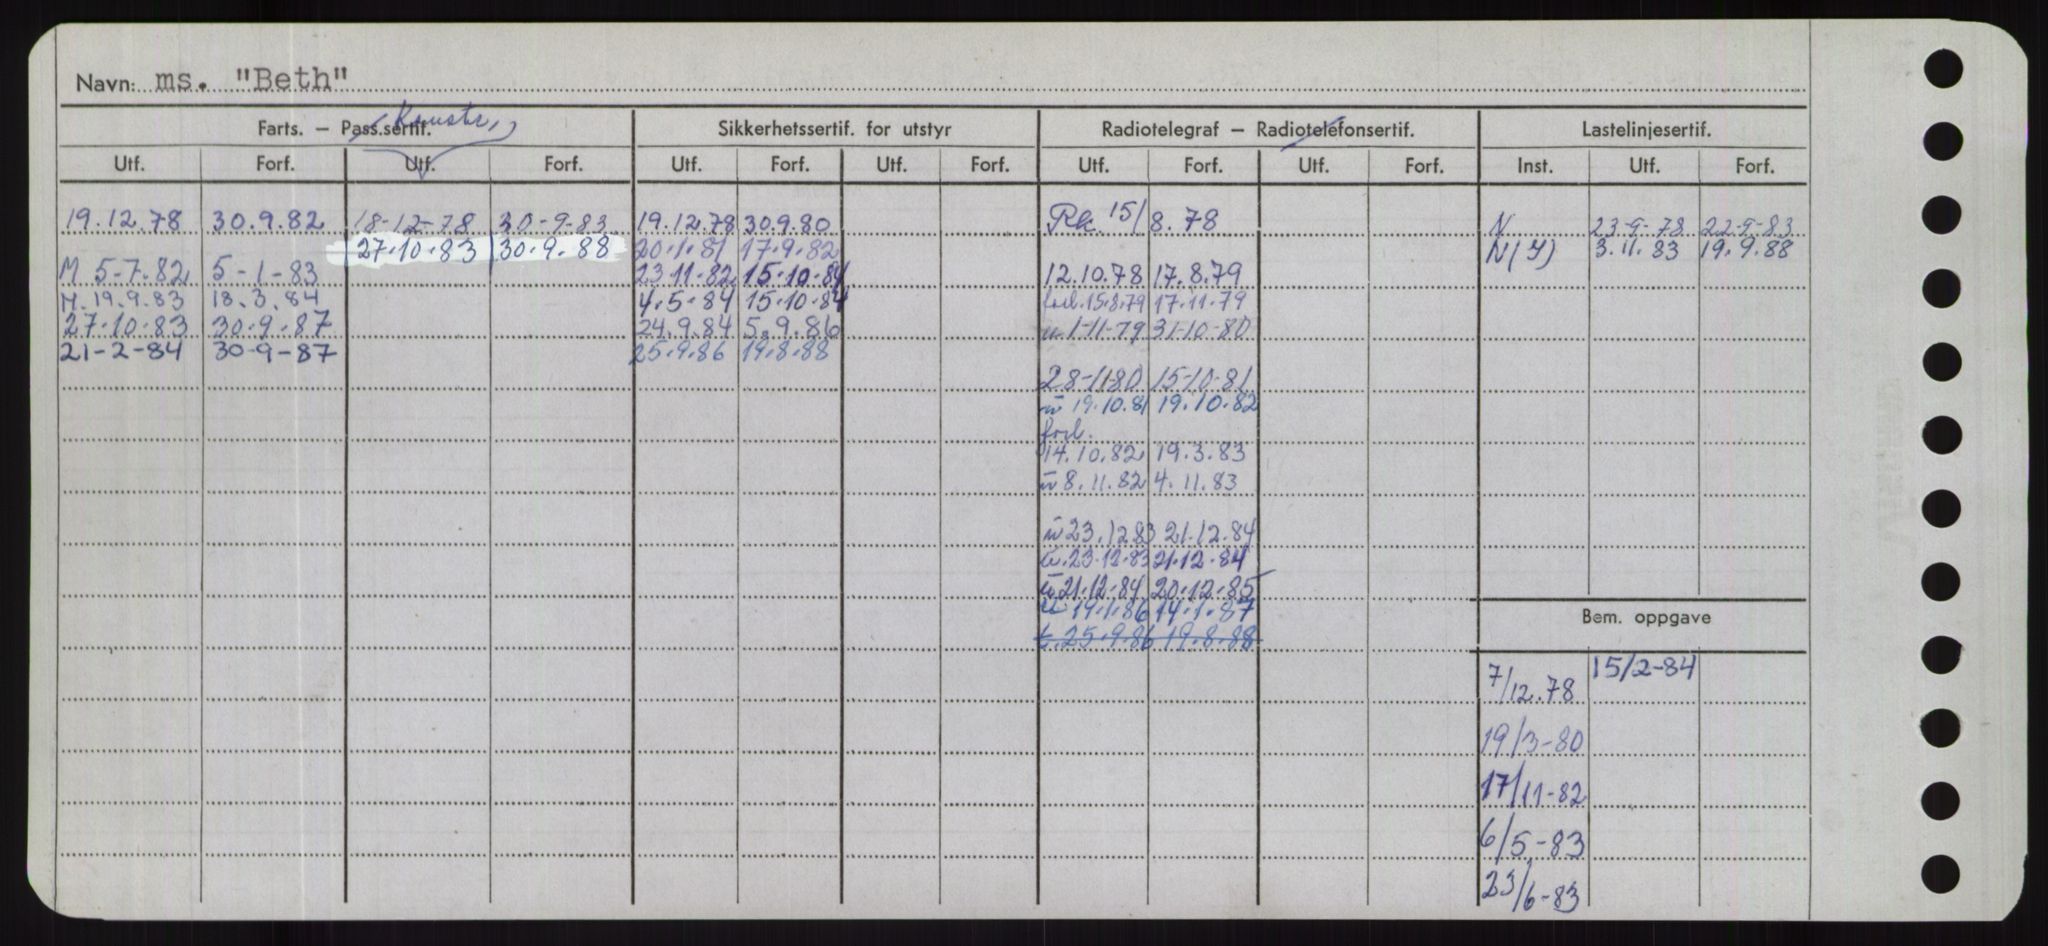 Navn: ms. "Beth"
Konstr.
Farts. – Pass.sertif. Sikkerhetssertif. for utstyr Radiotelegraf – Radiotelefonsertif. Lastelinjesertif.
Utf. Forf. Utf. Forf. Utf. Forf. Utf. Forf. Utf. Forf. Utf. Forf. Inst. Utf. Forf.
19.12.78 30.9.82 18-12-78 30-9-83 19.12.78 30.9.80 Rk. 15/8.78 N 23-9-78 22-9-83
27.10.83 30.9.88 20.1.81 17.9.82 N(Y) 3.11.83 19.9.88
M 5-7.82 5-1-83 23.11.82 15.10.84 12.10.78 17.8.79
M. 19.9.83 18.3.84 4.5.84 15.10.84 forl. 15.8.79 17.11.79
27-10-83 30-9-87 24.9.84 5.9.86 u 1-11-79 31-10-80
21-2-84 30-9-87 25.9.86 19.8.88
28-11-80 15-10-81
u 19.10.81 19.10.82
forl.
14.10.82 19.3.83
u 8.11.82 4.11.83
u 23.12.83 21.12.84
u. 23.12.83 21.12.84
u 21.12.84 20.12.85
u 14.1.87
25.9.86 19.8.88
Bem. oppgave
7/12.78 15/2-84
19/3-80
17/11-82
6/5-83
23/6-83